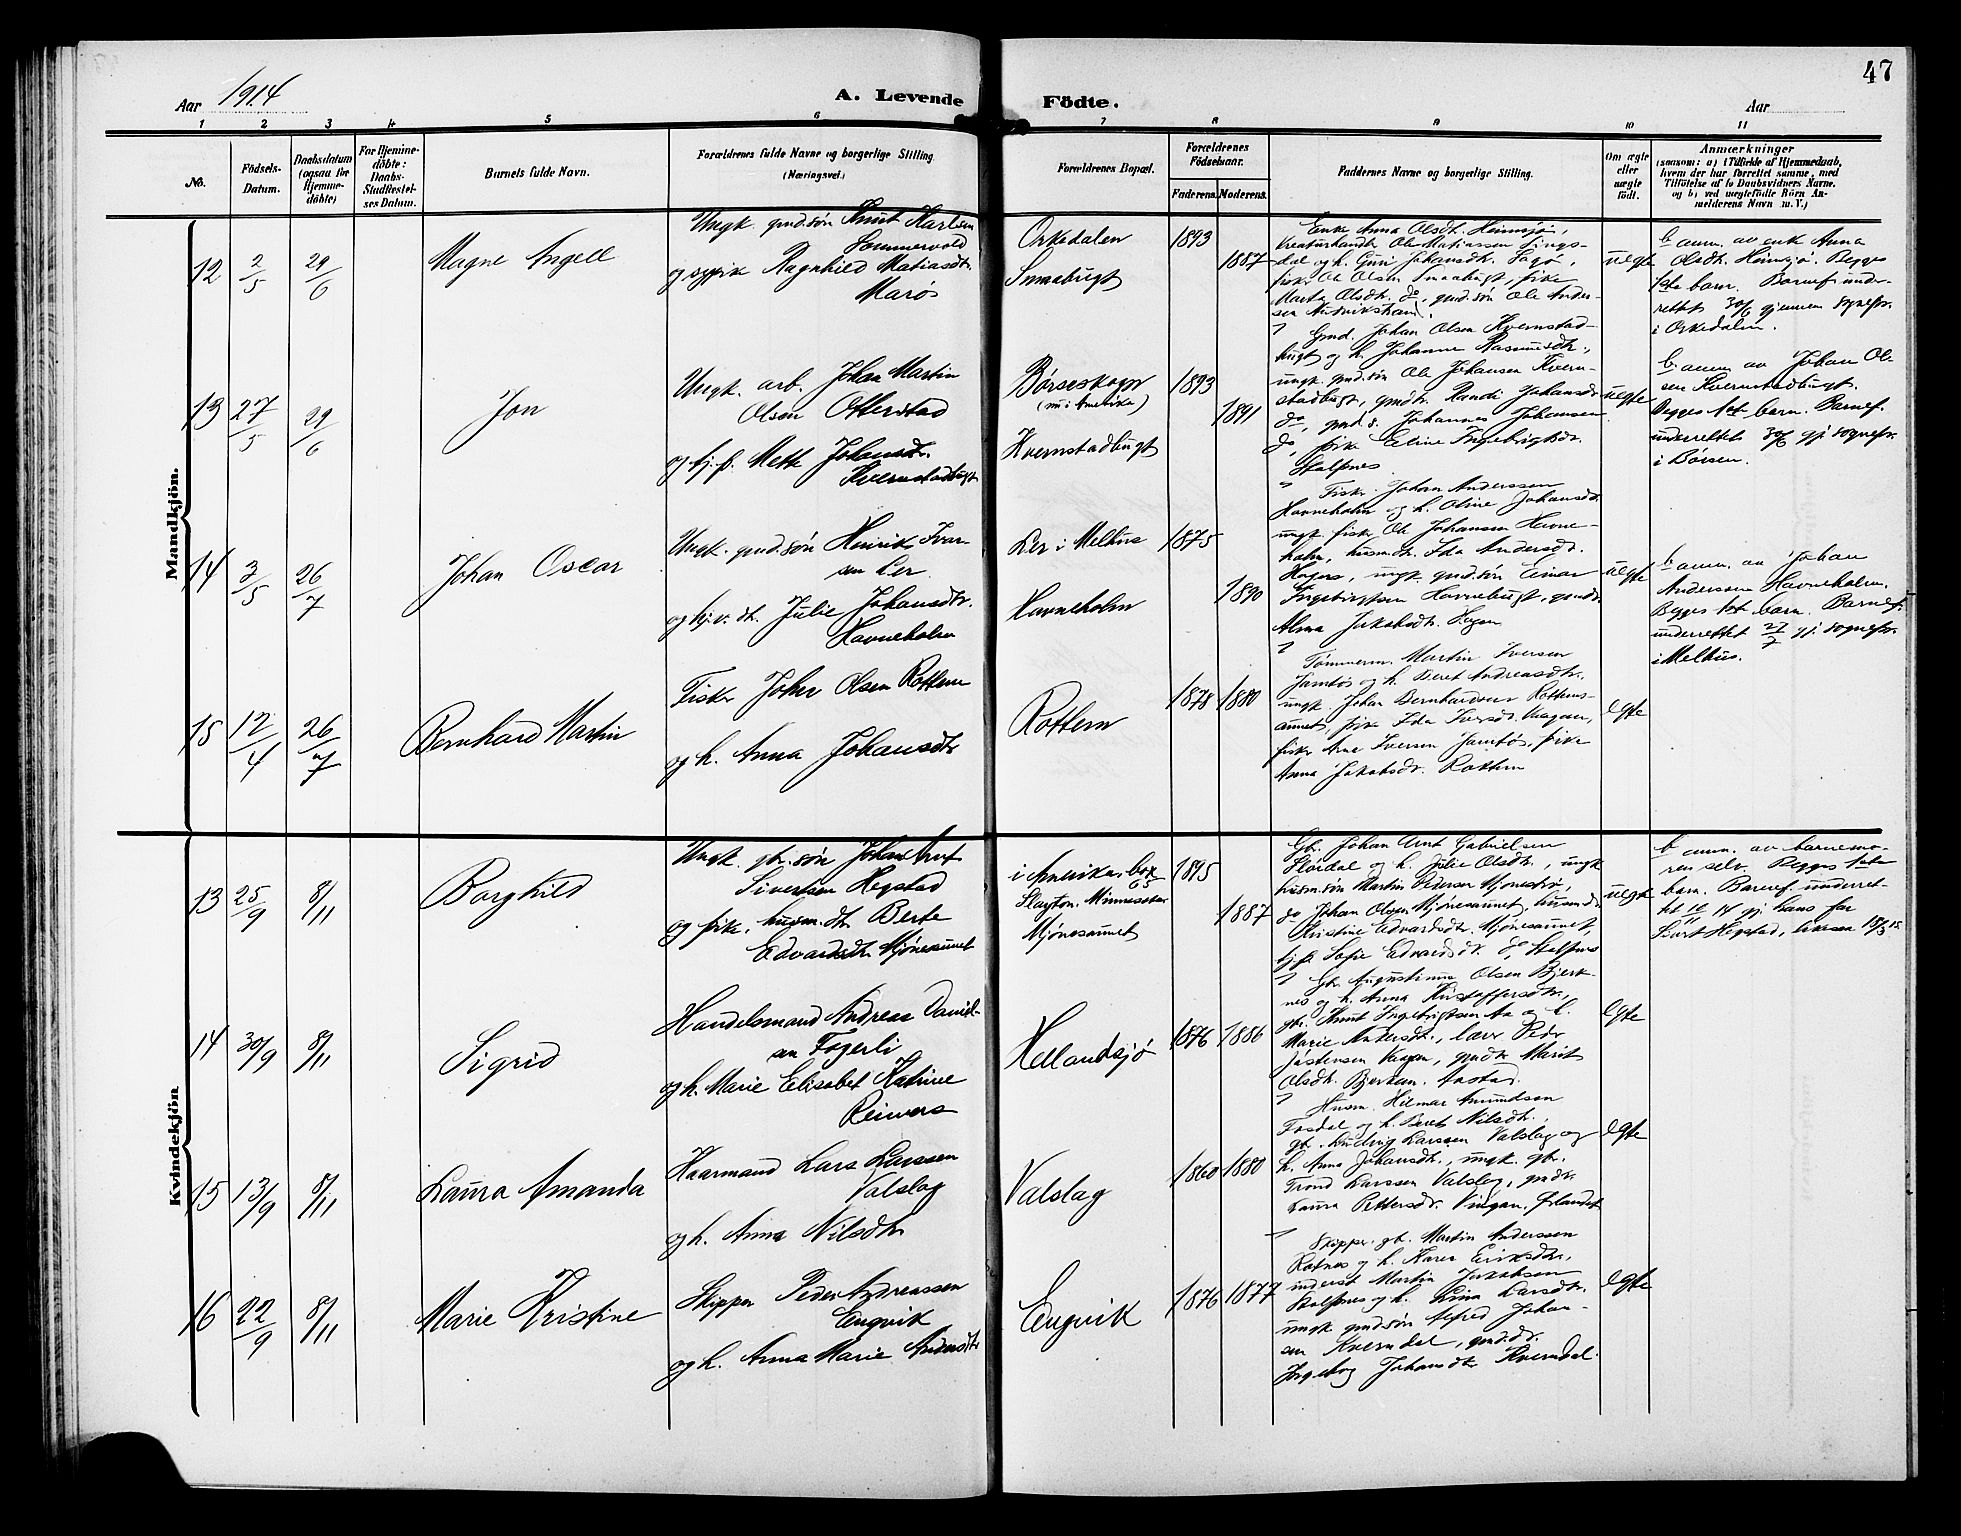 47
Aar 1914
A. Levende Födte.
Aar
1 2 3 4 5 6 7 8 9 10 11
No.
Födsels-
Datum.
Daabsdatum
(ogsaa for
Hjemme-
döbte)
For Hjemme-
döbte:
Daabs-
Stadfæstel-
ses Datum.
Barnets fulde Navn.
Forældrenes fulde Navne og borgerlige Stilling.
(Næringsvei.)
Forældrenes Bopæl.
Forældrenes
Födselsaar.
Faderens. Moderens.
Faddernes Navne og borgerlige Stilling.
Om ægte
eller
uægte
födt.
Anmærkninger
(saasom: a) i Tilfælde af Hjemmedaab,
hvem der har forrettet samme, med
Tilföielse af to Daabsvidners Navne.
og b) ved uægtefödte Börn An-
melderens Navn m. V.)
Mandkjön.
12
2/5
29/6
Magne Angell
Ungk. gmd.søn Knut Karlsen
Sommervold
og sypik Ragnhild Matiasdtr.
Marøs
Orkedalen
Smaabugt
1893
1887
Enke Anna Olsdt. Heimsjø,
Kreaturhandl. Ole Matiassen Lings-
dal og h. Guri Johansdt.
fisk. Ole Olsen Smaabugt, pike
Marta Olsdt. do, gmd.søn Ole Ander-
sen
uegte
b anm. av enk Anna
Olsdt. Heimsjø. Begges
1ste barn. Barnef. under-
rettet 30/6 gjennem sognepr.
i Orkedalen.
13
27/5
29/6
Jon
Ungk. arb. Johan Martin
Olsen Otterstad
og hj.p. Mette Johansdt.
Kvernstadbugt
Børseskogn
(nu i Amerika)
Kvernstadbugt
1893
1891
Gmd. Johan Olsen Kvernstad-
bugt og h. Johanne Rasmusdtr.,
ungk. gmd.søn Ole Johansen Kvern-
stadbugt, gmdt. Randi Johansdt
do, gmd s. Johannes Johansen
do, pike Eline Ingebrigtsdr.
Stalsnes
uegte
b anm. av Johan Ol-
sen Kvernstadbugt.
Begges 1st barn. Barnef.
underrettet 30/6 gj. sognepr.
i Børsen.
14
3/5
26/7
Johan Oscar
Ungk. gmd.søn Henrik Ivar-
sen Ler
og hj.v. dt. Julie Johansdtr.
Havneholm
Ler i Melhus
Havneholm
1875
1890
Fisk. Johan Anderssen
Havneholm og h. Oline Johansdt.
ungk. fisk Ole Johansen Havne-
holm, husmdt. Ida Andersdt.
Hagen, ungk. gmd.søn Einar
Ingebrigtsen Havnebugt, gmdt.
Alma Jakobsdt. Hagen
uegte
b anm. av Johan
Anderssen Havneholm.
Begges 1st barn. Barnef.
underrettet 27/7 gj. sognepr.
i Melhus.
15
12/4
26/7
Bernhard Martin
Fisker Johan Olsen Rottem
og h. Anna Johansdtr
Rottem
1878 1880
Tømmerm. Martin Iversen
Jamtøs og h. Beret Andreasdtr.
ungk. Johan Bernhardsen Rottems-
aunet, pike Ida Iversdt. Vaagan,
fisk. Arne Iversen Jamtøs, pike
Anna Jakobsdt. Rottem
egte
Kvindekjön
13
25/9
8/11
Borghild
Ungk. gbr.søn Johan Arnt
Sivertsen Hegstad
og pike, husm. dt. Berte
Edvardsdt. Mjønesaunet
i Amerika, box
65
Slayton. Minnesota
Mjønesaunet
1895
1887
Gbr. Johan Arnt Gabrielsen
Slørdal og h. Julie Olsdt., ungk
husm.søn Martin Pedersen Mjønestrø,
do Johan Olsen Mjønesaunet, husmdt.
Kristine Edvardsdt. Mjønesaunet,
hj.p. Sofie Edvardsdt. do, Stalsnes
uegte
b anm. av barnemo-
ren selv. Begges 1ste
barn. Barnef. underret-
tet 10/11 14 gj. hans far
Sivert Hegstad,
14
30/9
8/11
Sigrid
Handelsmand Andreas Daniel-
sen Fagerli
og h. Marie Elisabet Katrine
Reiners
Hellandsjø
1876 1886
Gbr. Augustinus Olsen Bjerk-
nes og h. Anna Kristoffersdtr.,
gbr. Knut Ingebrigtsen Aa og h.
Marie Andersdt., lærer Peder
Jostensen Vaagan, gmdt. Marit
Olsdt. Bjerkan. Aastad.
egte
15
13/9
8/11
Laura Amanda
Haarmand Lars Larssen
Valslag
og h. Anna Nilsdtr
Valslag
1860 1880
Husm. Hilmar Amundsen
Fosdal og h. Beret Nilsdtr.
gbr. Ludvig Larssen Valslag og
h. Anna Johansdt., ungk. gbr.
Trond Larssen Valslag, gmdt.
Laura Pettersdt. Vingan, Ørlandet
egte
16
22/9
8/11
Marie Kristine
Skipper Peder Andreassen
Engvik
og h. Anna Marie Andersdtr
Engvik
1876 1877
Skipper, gbr. Martin Anderssen
Rotnes og h. Karen Eriksdtr.,
inderst Martin Jakobsen
Stalsnes og h. Lina Larsdtr.
ungk gmd.søn Alfred Johan-
sen Kverndal, gmd.dt.
Ingeborg Johansdtr Kverndal.
egte